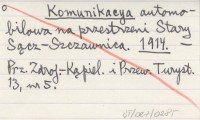 Komunikacya automo-
bilowa na przestrzeni Stary
Sącz-Szczawnica. 1914. —
Prz. Zdroj.-Kąpiel. i Przew. Turyst.
13, nr 5.